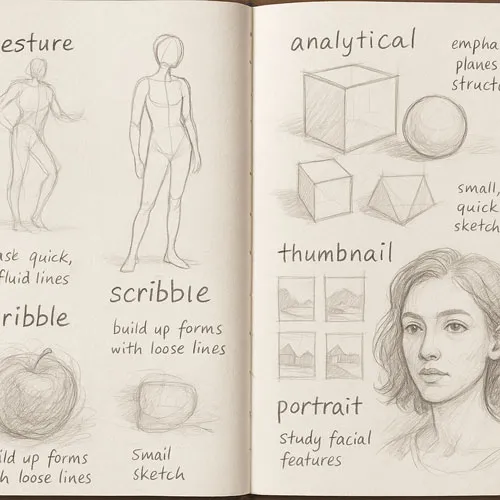 esture
ask quick,
fluid lines
ribble
ild up forms
with loose lines
scribble
build up forms
with loose lines
Smail
sketch
analytical
empha
planes
structu
small,
quick
sketch
thumbnail
portrait
study facial
features